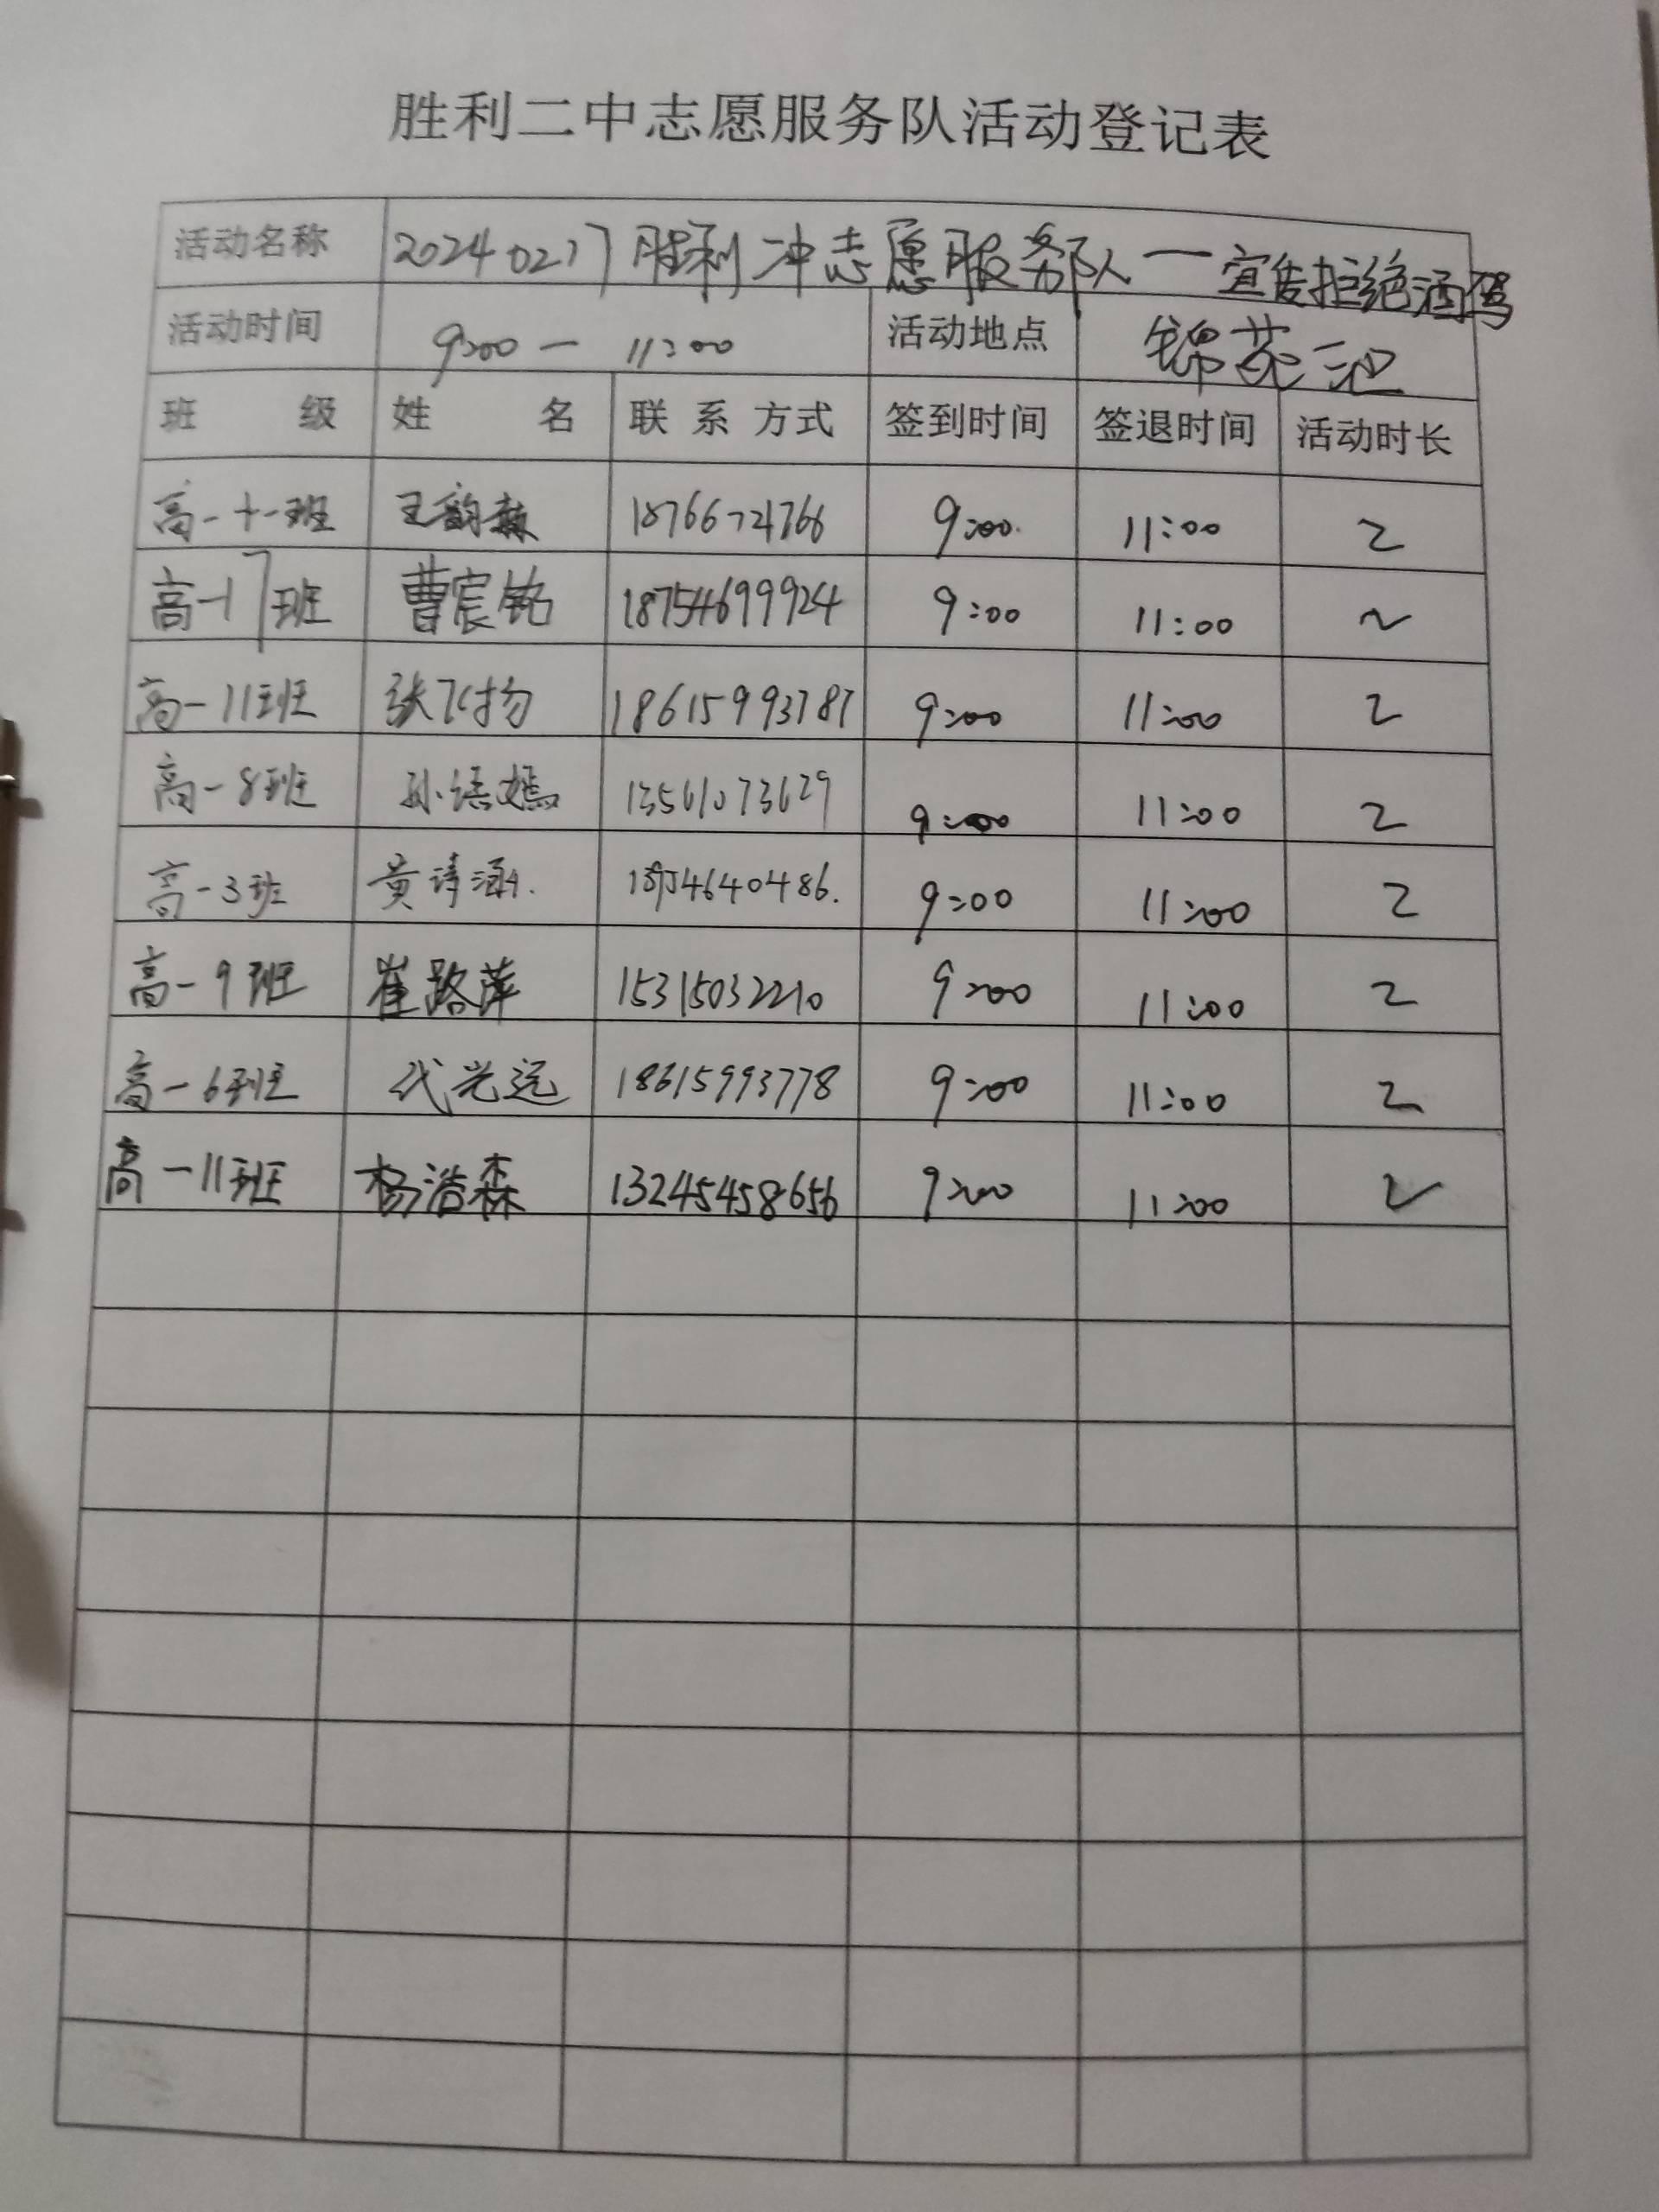 胜利二中志愿服务队活动登记表
活动名称 20240217胜利二中志愿服务队一宣传拒绝酒驾
活动时间 9:00一11:00 活动地点 锦苑三区
班级 姓名 联系方式 签到时间 签退时间 活动时长
高一十一班 王韵森 18766724766 9:00 11:00 2
高一17班 曹宸铭 18754699924 9:00 11:00 2
高一11班 张飞扬 18615993787 9:00 11:00 2
高一8班 孙语嫣 13561073629 9:00 11:00 2
高一3班 黄诗涵 9:00 11:00 2
高一9班 崔路萍 15315032210 9:00 11:00 2
高一6班 代光远 18615993778 9:00 11:00 2
高一11班 杨浩森 13245458656 9:00 11:00 2